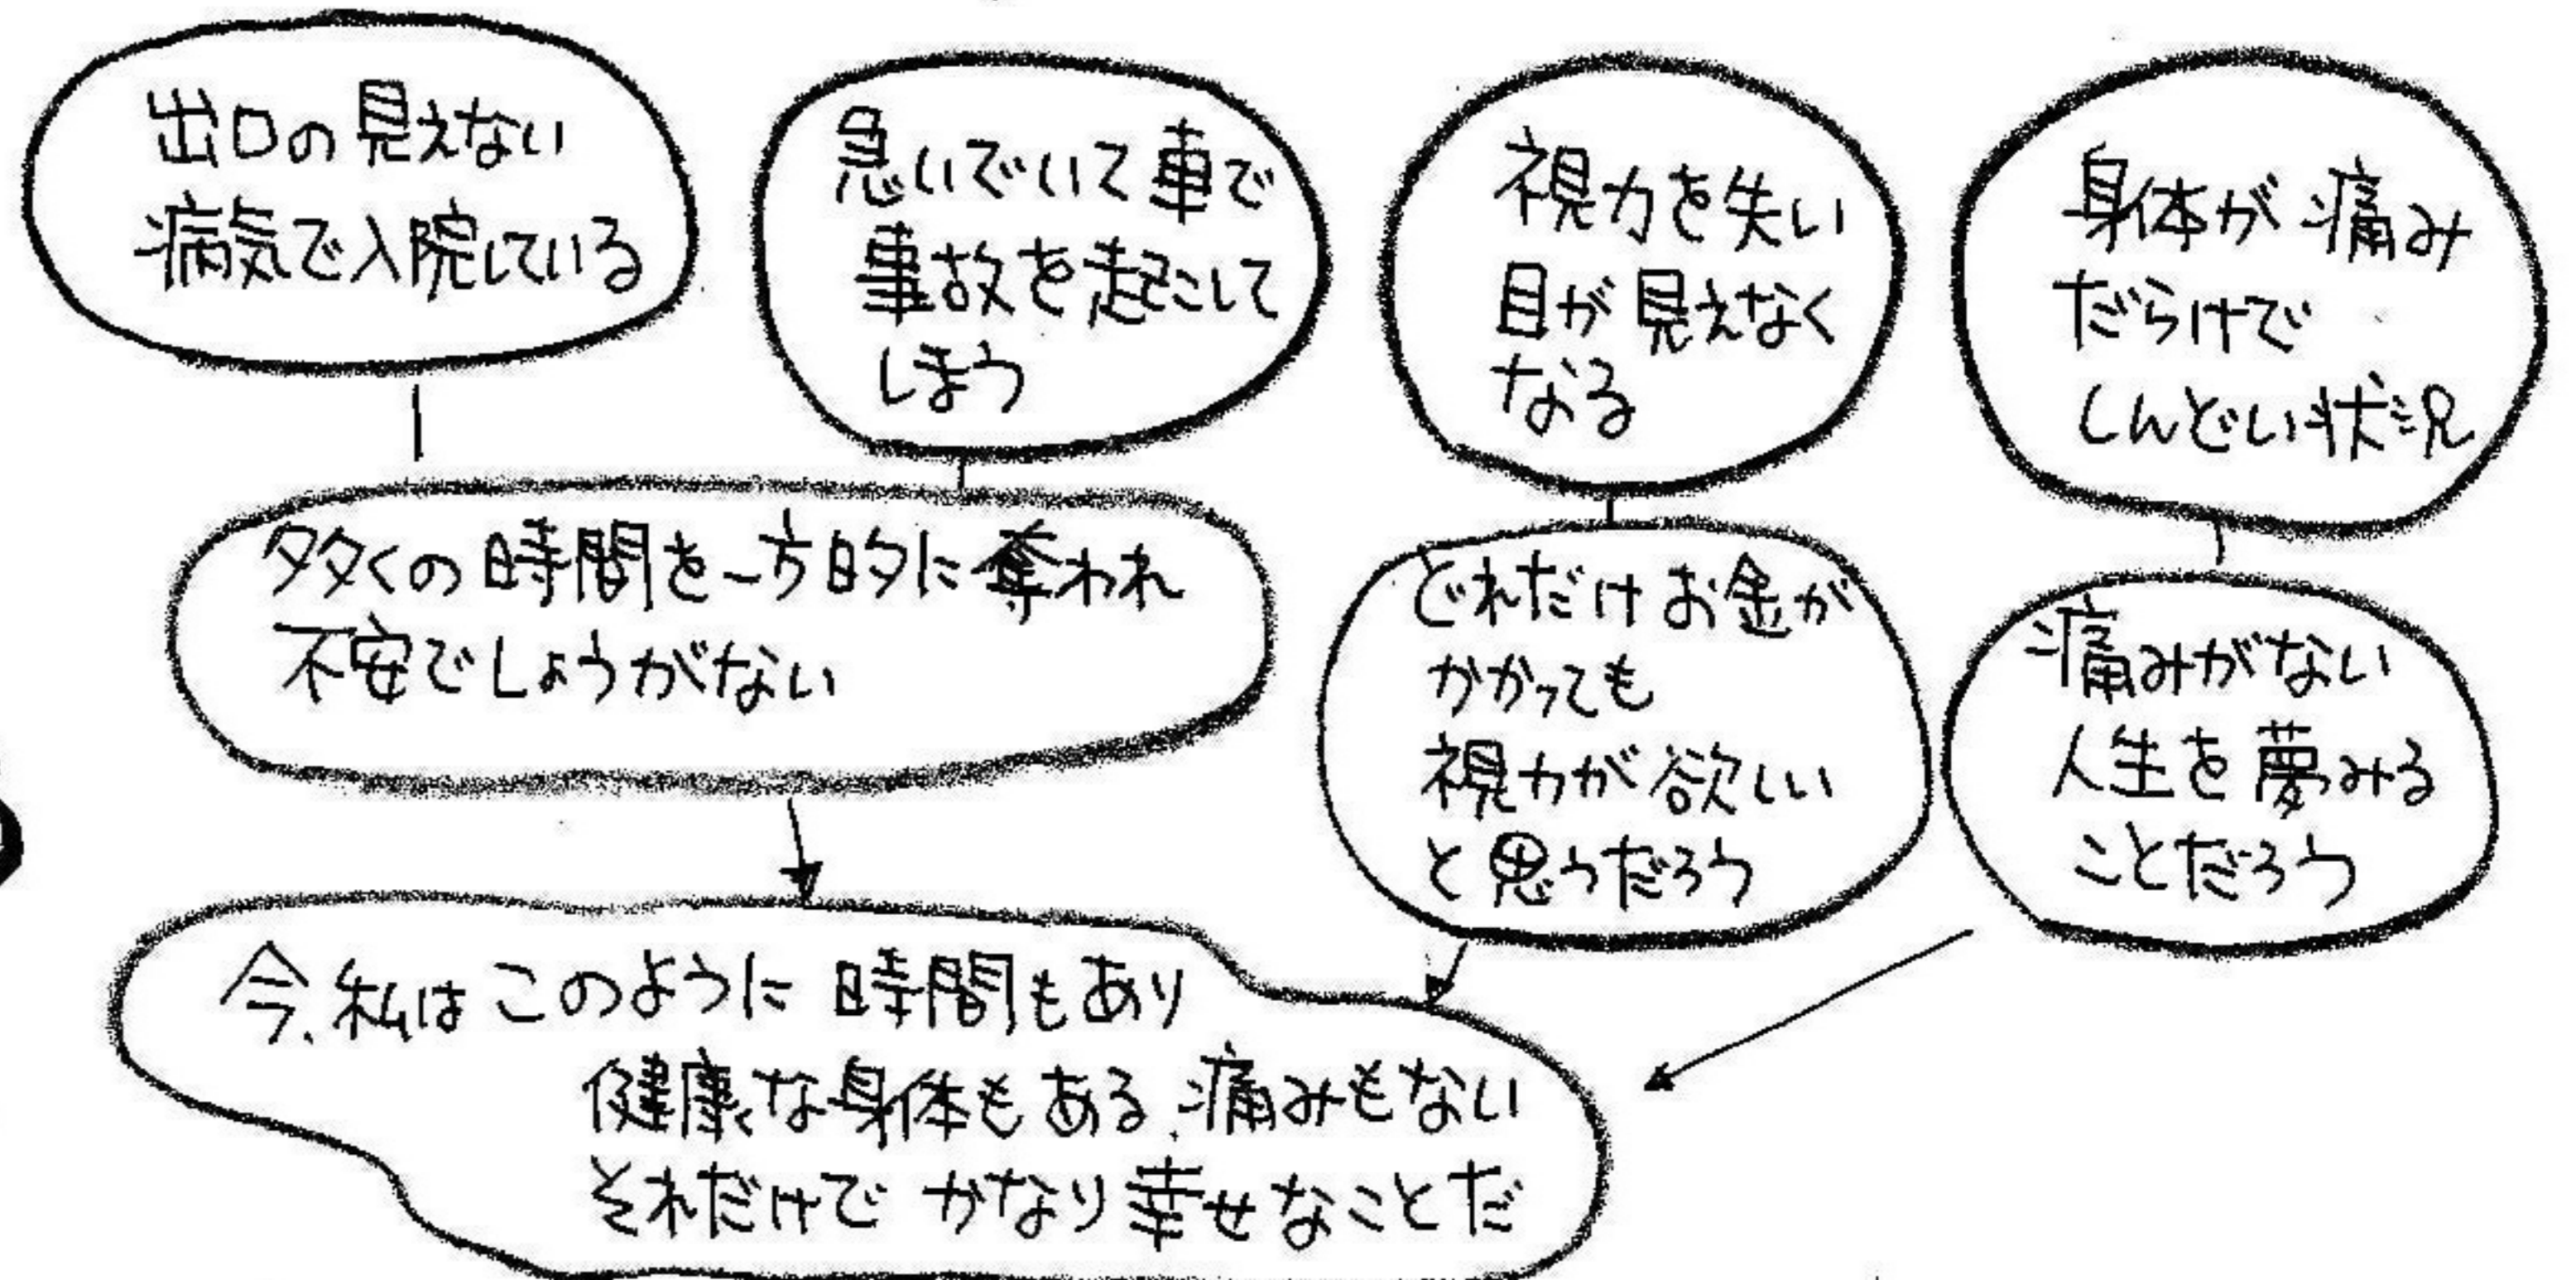 出口の見えない
病気で入院している
急いでいて車で
事故を起こして
しまう
視力を失い
目が見えなく
なる
身体が痛み
だらけで
しんどい状況
多くの時間を一方的に奪われ
不安でしょうがない
どれだけお金が
かかっても
視力が欲しい
と思うだろう
痛みがない
人生を夢みる
ことだろう
今、私はこのように時間もあり
健康な身体もある、痛みもない
それだけでかなり幸せなことだ